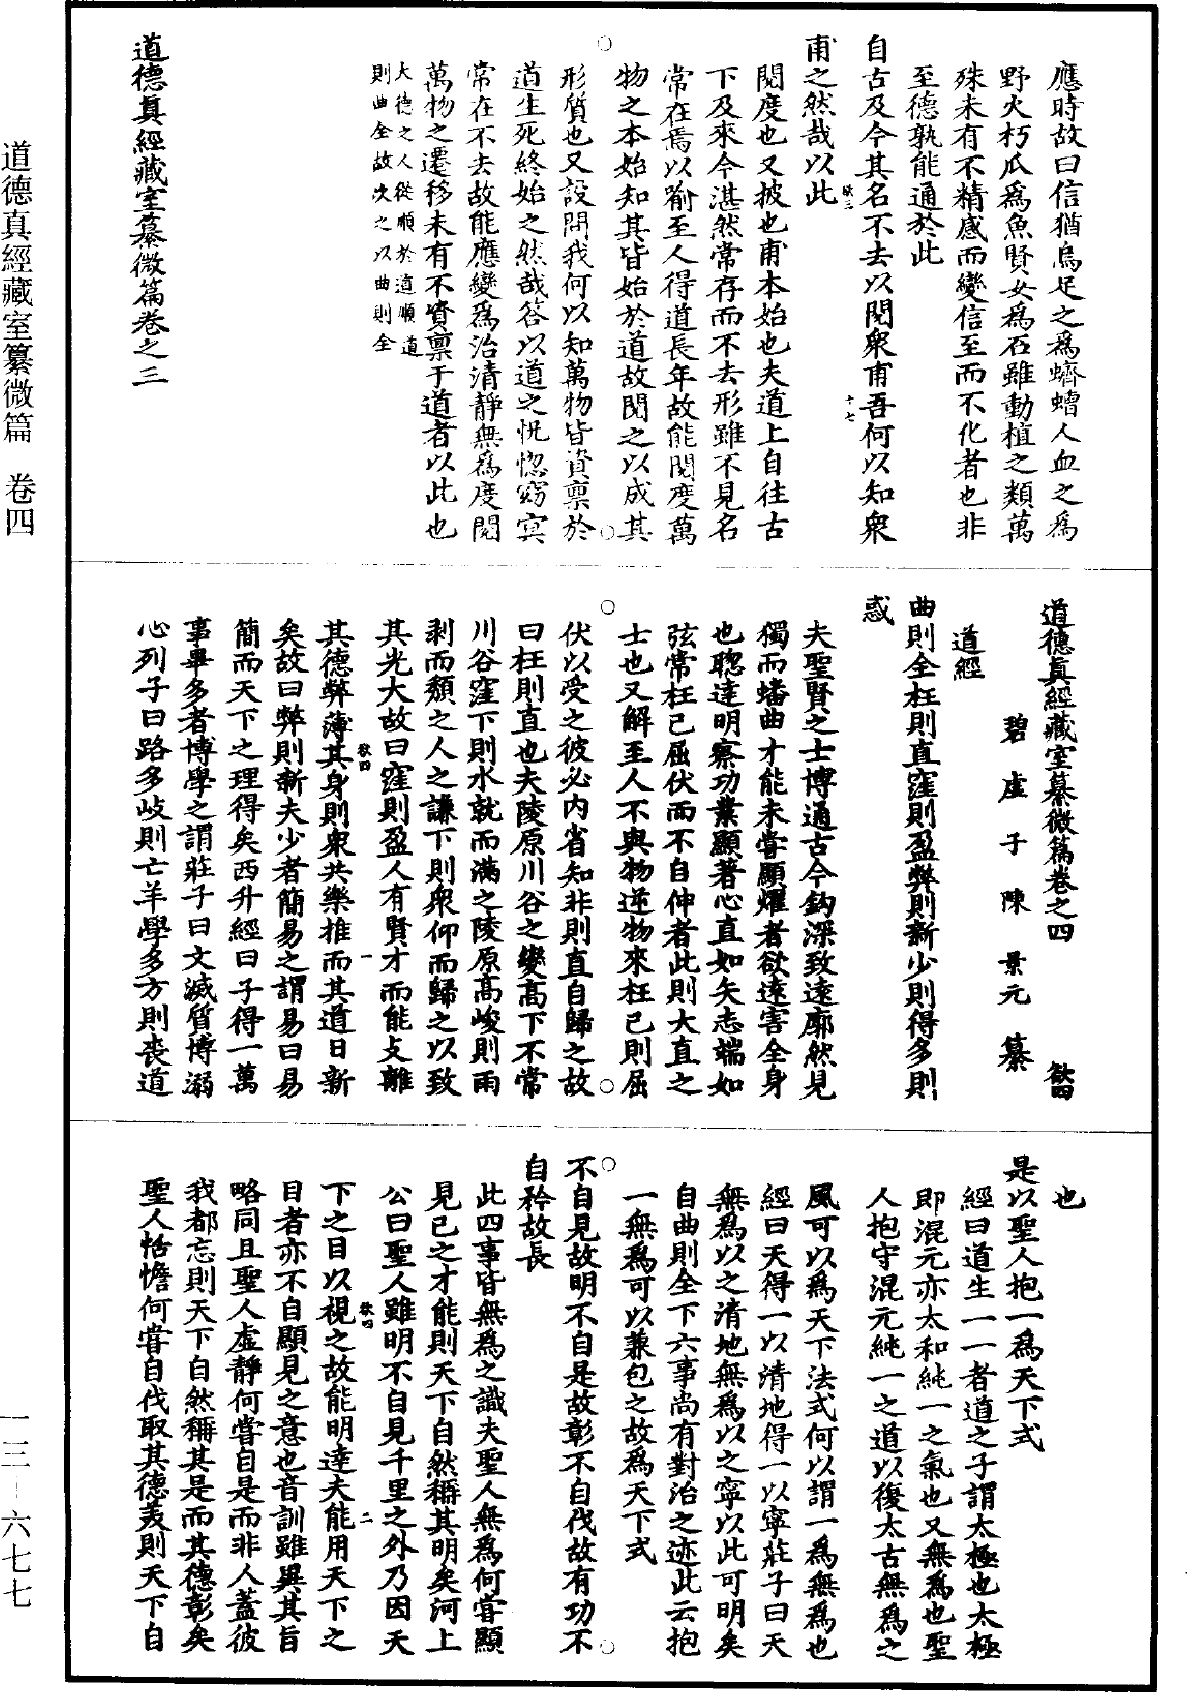 應時故曰信猶烏足之爲蠐螬人血之爲
野火朽瓜爲魚賢女爲石雖動植之類萬
殊未有不精感而變信至而不化者也非
至德孰能通於此
自古及今其名不去以閱衆甫吾何以知衆
甫之然哉以此
欲三
十七
閱度也又披也甫本始也夫道上自往古
下及來今湛然常存而不去形雖不見名
常在焉以喻至人得道長年故能閱度萬
物之本始知其皆始於道故閱之以成其
形質也又設問我何以知萬物皆資禀於
道生死終始之然哉答以道之怳惚窈冥
常在不去故能應變爲治清靜無爲度閱
萬物之遷移未有不資禀于道者以此也
大德之人從順於道順道
則曲全故次之以曲則全
道德真經藏室纂微篇卷之三
道德真經藏室纂微篇卷之四
欲四
碧虛子陳景元纂
道經
曲則全枉則直窪則盈弊則新少則得多則
惑
夫聖賢之士博通古今鈎深致遠廓然見
獨而蟠曲才能未嘗顯燿者欲遠害全身
也聰達明察功業顯著心直如矢志端如
弦常枉己屈伏而不自伸者此則大直之
士也又解至人不與物逆物來枉己則屈
伏以受之彼必内省知非則直自歸之故
曰枉則直也夫陵原川谷之變高下不常
川谷窪下則水就而滿之陵原高峻則雨
剥而頹之人之謙下則衆仰而歸之以致
其光大故曰窪則盈人有賢才而能支離
欲四
一
其德弊薄其身則衆共樂推而其道日新
矣故曰弊則新夫少者簡易之謂易曰易
簡而天下之理得矣西升經曰子得一萬
事畢多者博學之謂莊子曰文滅質博溺
心列子曰路多岐則亡羊學多方則喪道
也
是以聖人抱一爲天下式
經曰道生一一者道之子謂太極也太極
即混元亦太和純一之氣也又無爲也聖
人抱守混元純一之道以復太古無爲之
風可以爲天下法式何以謂一爲無爲也
經曰天得一以清地得一以寧莊子曰天
無爲以之清地無爲以之寧以此可明矣
自曲則全下六事尚有對治之迹此云抱
一無爲可以兼包之故爲天下式
不自見故明不自是故彰不自伐故有功不
自矜故長
此四事皆無爲之識夫聖人無爲何嘗顯
見己之才能則天下自然稱其明矣河上
公曰聖人雖明不自見千里之外乃因天
欲四
二
下之目以視之故能明達夫能用天下之
目者亦不自顯見之意也音訓雖異其旨
略同且聖人虛靜何嘗自是而非人蓋彼
我都忘則天下自然稱其是而其德彰矣
聖人恬憺何嘗自伐取其德美則天下自
道德真經藏室纂微篇 卷四
一三—六七七